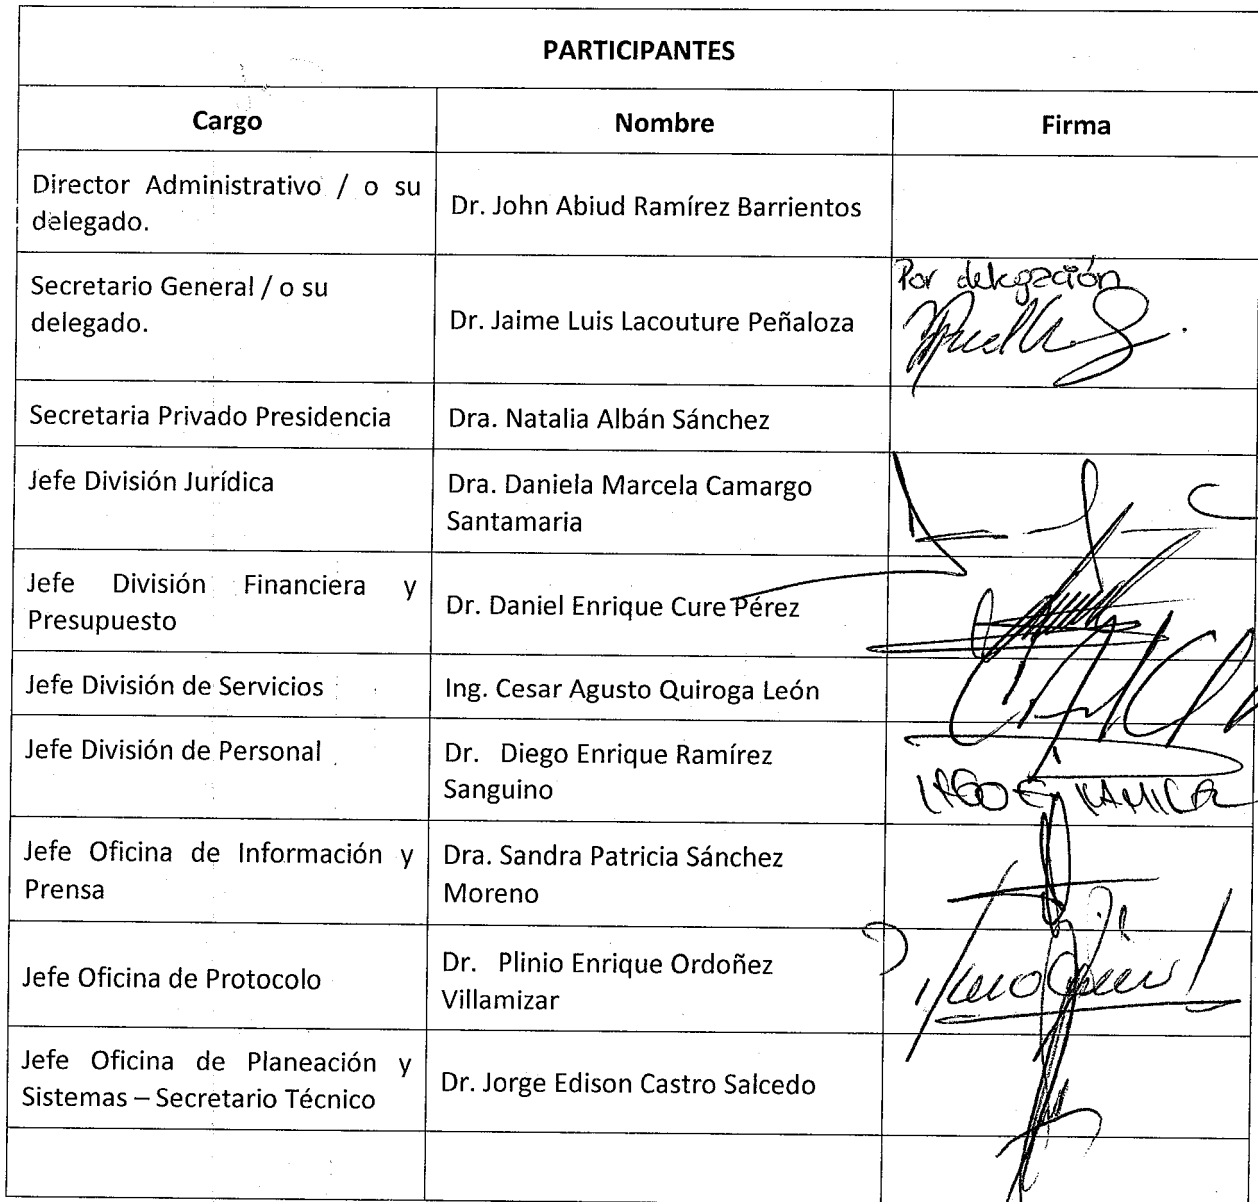 PARTICIPANTES
Cargo Nombre Firma
Director Administrativo / o su
delegado.
Dr. John Abiud Ramírez Barrientos
Secretario General / o su
delegado.
Dr. Jaime Luis Lacouture Peñaloza
Por delegación
Secretaria Privado Presidencia
Dra. Natalia Albán Sánchez
Jefe División Jurídica
Dra. Daniela Marcela Camargo
Santamaria
Jefe División Financiera y
Presupuesto
Dr. Daniel Enrique Cure Pérez
Jefe División de Servicios
Ing. Cesar Agusto Quiroga León
Jefe División de Personal
Dr. Diego Enrique Ramírez
Sanguino
Jefe Oficina de Información y
Prensa
Dra. Sandra Patricia Sánchez
Moreno
Jefe Oficina de Protocolo
Dr. Plinio Enrique Ordoñez
Villamizar
Jefe Oficina de Planeación y
Sistemas – Secretario Técnico
Dr. Jorge Edison Castro Salcedo